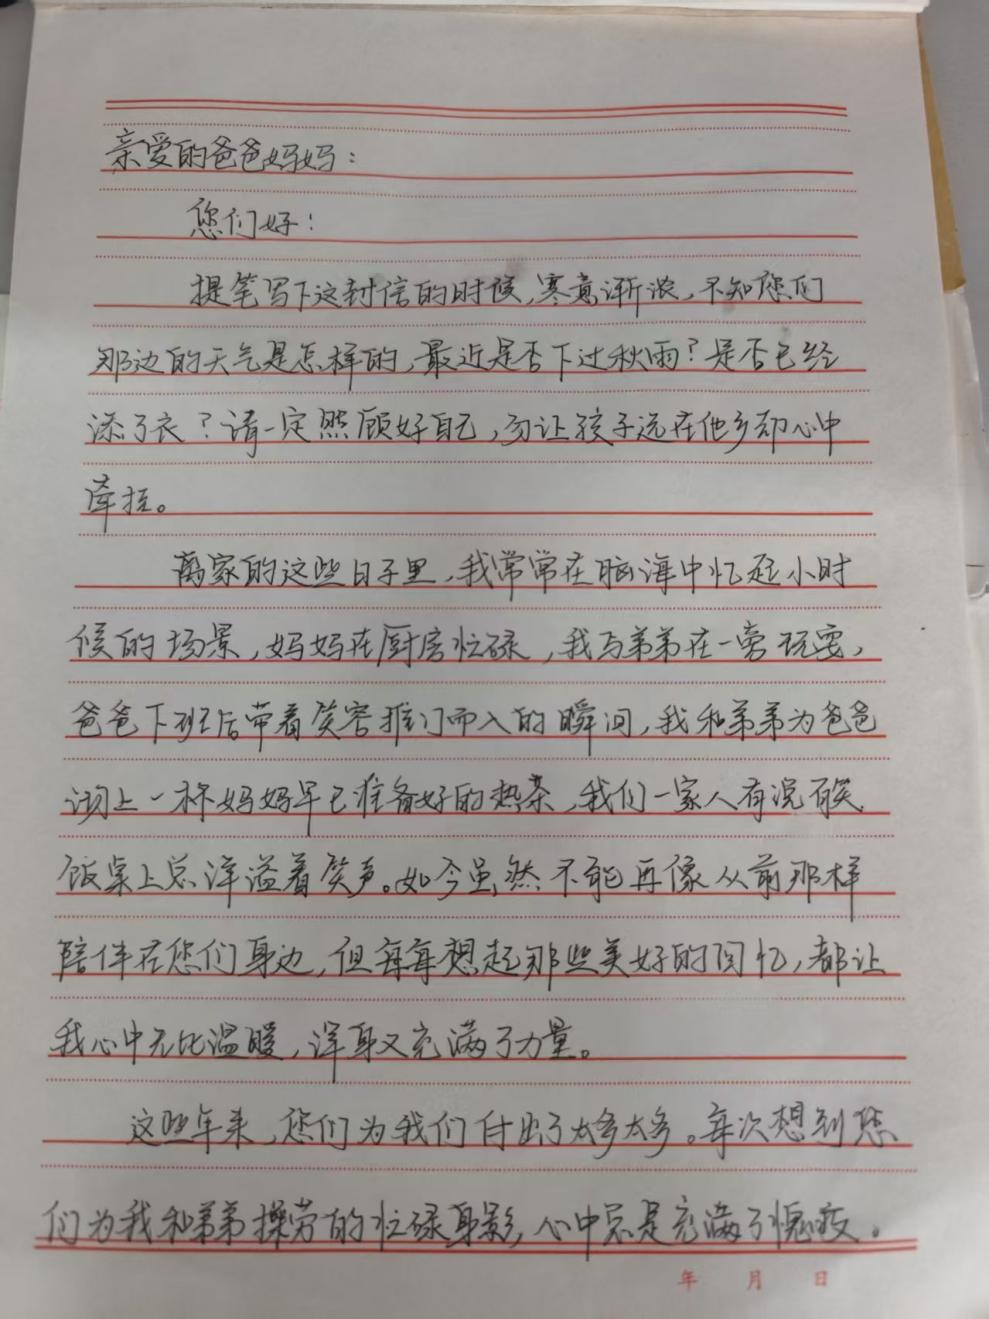 亲爱的爸爸妈妈：
您们好！
提笔写下这封信的时候，寒意渐浓，不知您们
那边的天气是怎样的，最近是否下过秋雨？是否已经
添了衣？请一定照顾好自己，勿让孩子远在他乡却心中
牵挂。
离家的这些日子里，我常常在脑海中忆起小时
候的场景，妈妈在厨房忙碌，我与弟弟在一旁玩耍，
爸爸下班后带着笑容推门而入的瞬间，我和弟弟为爸爸
沏上一杯妈妈早已准备好的热茶，我们一家人有说有笑
饭桌上总洋溢着笑声。如今虽然不能再像从前那样
陪伴在您们身边，但每每想起那些美好的回忆，都让
我心中无比温暖，浑身又充满了力量。
这些年来，您们为我们付出了太多太多。每次想到您
们为我和弟弟操劳的忙碌身影，心中总是充满了愧疚。
年 月 日